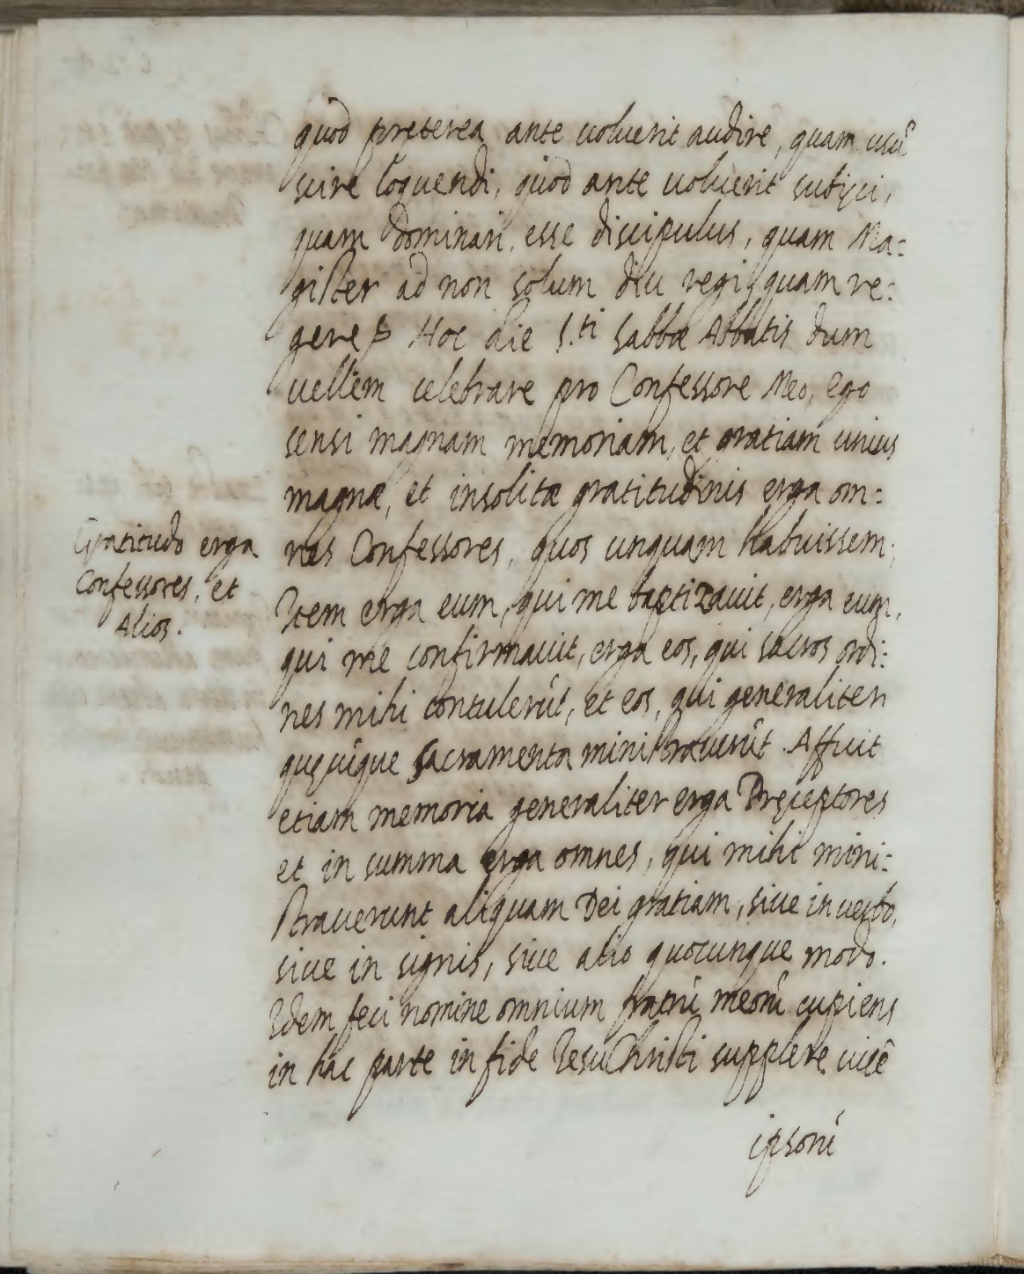 quod preterea ante voluerit audire, quam usũ
scire loquendi, quod ante voluerit subijci,
quam dominari, esse discipulus, quam Ma:
gister ad non solum diu regi, quam re:
gere
Hoc die S.ti Sabbæ Abbatis dum
vellem celebrare pro Confessore Meo, ego
sensi magnam memoriam, et gratiam unius
magnæ, et insolitæ gratitudinis erga om:
Gratitudo erga
Confessores, et
Alios.
nes Confessores, quos unquam habuissem;
Item erga eum, qui me baptizavit, erga eum,
qui me confirmavit, erga eos, qui sacros ordi:
nes mihi contulerũt, et eos, qui generaliter
quęcũque Sacramenta ministraverũt. Affuit
etiam memoria generaliter erga Pręceptores
et in summa erga omnes, qui mihi mini:
straverunt aliquam Dei gratiam, sive in verbo,
sive in signis, sive alio quocunque modo.
Idem feci nomine omnium fratrũ meorũ cupiens
in hac parte in fide Jesu Christi supplere vicẽ
ipsorũ